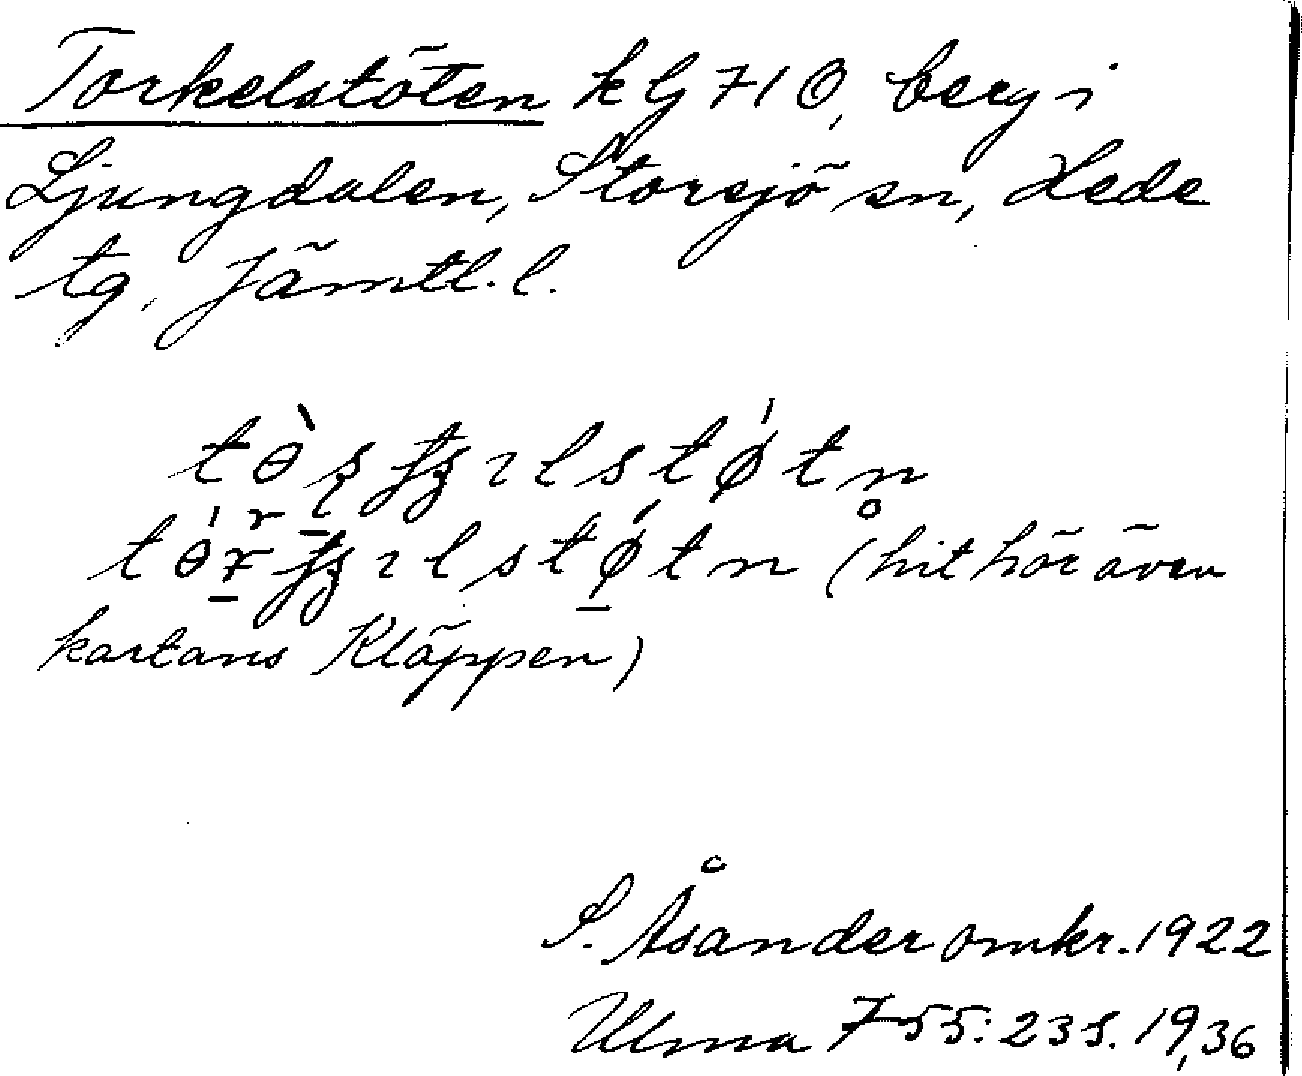 Torkelstöten kG 710, berg i
Ljungdalen, Storsjö sn, Hede
tg, Jämtl. l.
(hit hör även
kartans Kläppen)
S. Åsander omkr. 1922
Ulma 755: 23 s. 19, 36